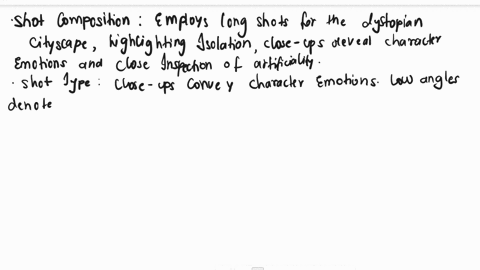 ·Shot Composition: Employs long shots for the dystopian
Cityscape, highlighting Isolation, close-ups deveal character
Emotions and close Inspection of artificiality.
· Shot Type: Close-ups Convey character Emotions. Low angles
denote